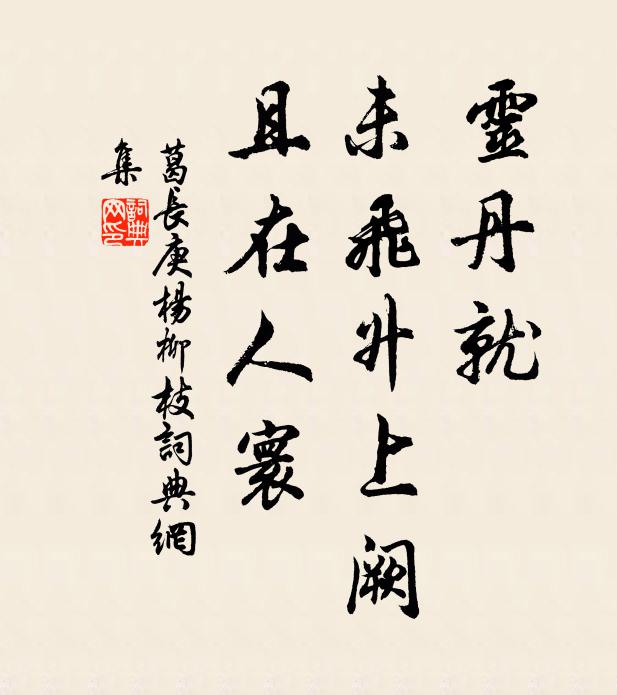 靈丹就
未飛升上阙
且在人寰
葛長庚楊柳枝詞典網
集
詞典
网印